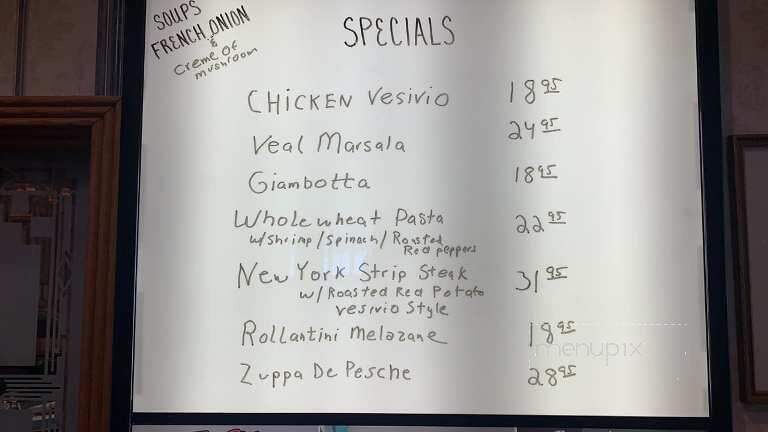 SOUPS
FRENCH ONION
&
creme of
mushroom
SPECIALS
CHICKEN Vesivio 18 95
Veal Marsala 24 95
Giambotta 18 95
Whole wheat Pasta 22 95
w/shrimp/spinach/Roasted
Red peppers
New York Strip Steak 31 95
w/Roasted Red Potato
vesivio Style
Rollantini Melazane 18 95
Zuppa De Pesche 28 95
menupix